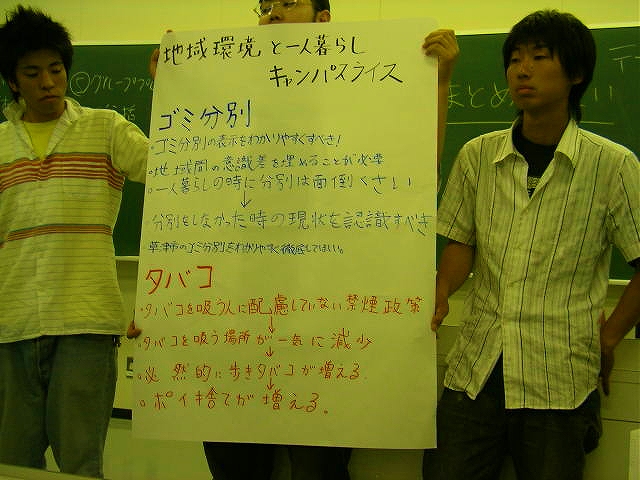 地域環境と一人暮らし
キャンパスライス
ゴミ分別
・ゴミ分別の表示をわかりやすくすべき!
・地域間の意識差を埋めることが必要
・一人暮らしの時に分別は面倒くさい
↓
分別をしなかった時の現状を認識すべき
草津市のゴミ分別をわかりやすく徹底してほしい。
タバコ
・タバコを吸う人に配慮していない禁煙政策
↓
・タバコを吸う場所が一気に減少
↓
・必然的に歩きタバコが増える
↓
・ポイ捨てが増える。
©グループ
まとめ